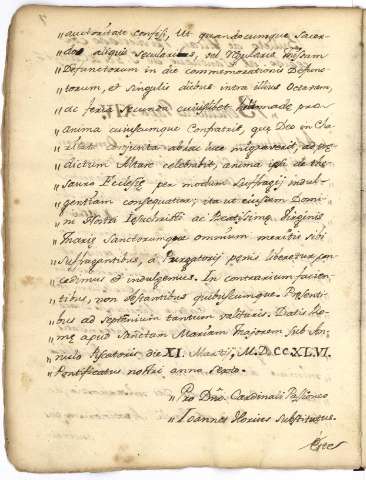 „ auctoritate confisi, Ut quandocumque Sacer-
„ dos aliquis secularis, vel Regularis Missam
„ Defunctorum in die commemorationis Defunc-
„ torum, et singulis diebus intra illius Octavam,
„ ac feria secunda cuiuslibet hebdomade pro
„ anima cuiuscumque Confratris, que Deo in Cha-
„ ritate Conjuncta ab hac luce migraverit, ad pre-
„ dictum Altare celebrabit, anima ipsa de the-
„ sauro Ecclesie per modum Suffragij indul-
„ gentiam consequatur; ita ut eiusdem Domi-
„ ni Nostri Iesuchristi ac Beatissime Virginis
„ Marie Sanctorumque omnium meritis sibi
„ suffragantibus, a Purgatorij penis liberetur, con-
„ cedimus et indulgemus. In contrarium facien-
„ tibus, non obstantibus quibuscumque. Presenti-
„ bus ad Septennium tantum valituris. Datis Ro-
„ me apud Sanctam Mariam Majorem sub An-
„ nulo Piscatoris die XI. Martij, M.D.CC.XLVI.
„ Pontificatus nostri anno Sexto.
„ Pro Dño. Cardinali Passioneo
„ Ioannes Florius Substitutus.